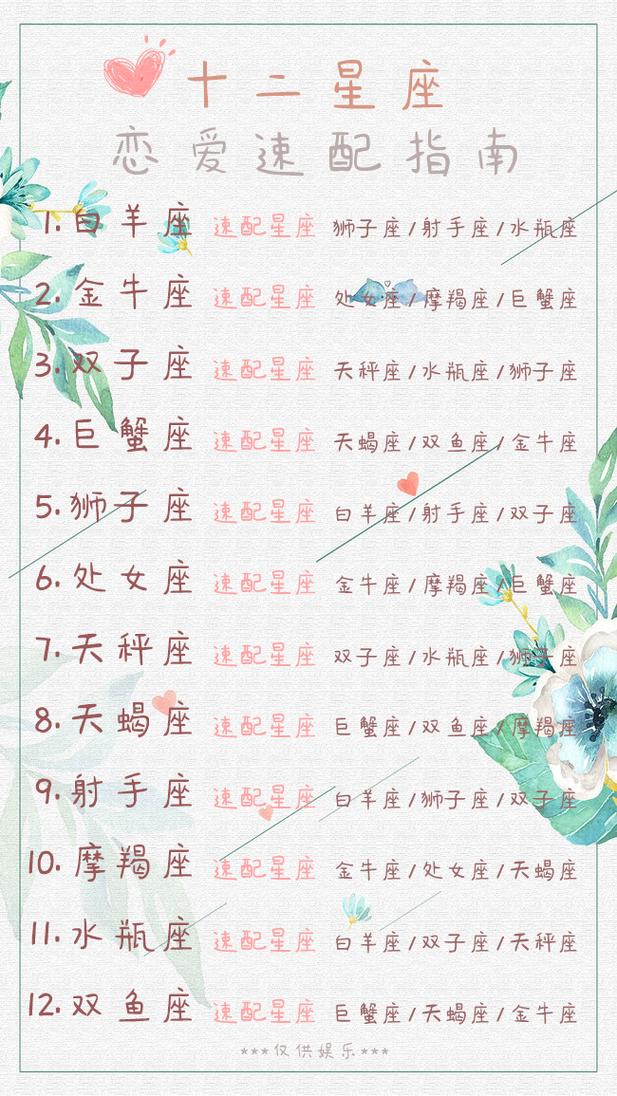 十二星座
恋爱速配指南
1. 白羊座 速配星座 狮子座/射手座/水瓶座
2. 金牛座 速配星座 处女座/摩羯座/巨蟹座
3. 双子座 速配星座 天秤座/水瓶座/狮子座
4. 巨蟹座 速配星座 天蝎座/双鱼座/金牛座
5. 狮子座 速配星座 白羊座/射手座/双子座
6. 处女座 速配星座 金牛座/摩羯座/巨蟹座
7. 天秤座 速配星座 双子座/水瓶座/狮子座
8. 天蝎座 速配星座 巨蟹座/双鱼座/摩羯座
9. 射手座 速配星座 白羊座/狮子座/双子座
10. 摩羯座 速配星座 金牛座/处女座/天蝎座
11. 水瓶座 速配星座 白羊座/双子座/天秤座
12. 双鱼座 速配星座 巨蟹座/天蝎座/金牛座
***仅供娱乐***